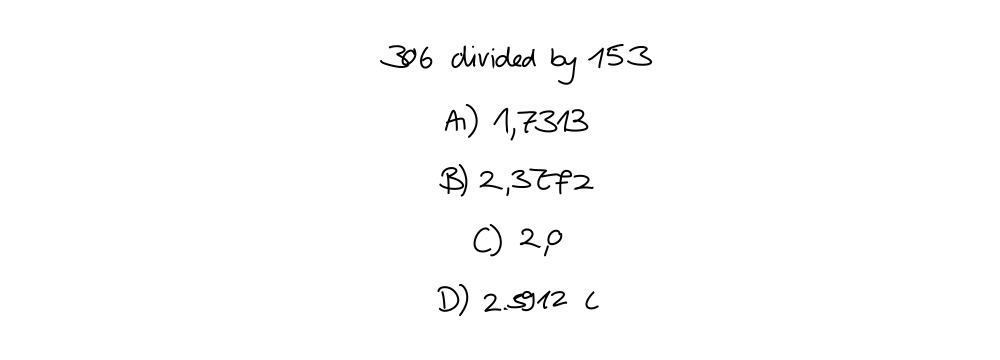 306 divided by 153
A) 1,7313
B) 2,3772
C) 2,0
D) 2.5912 C